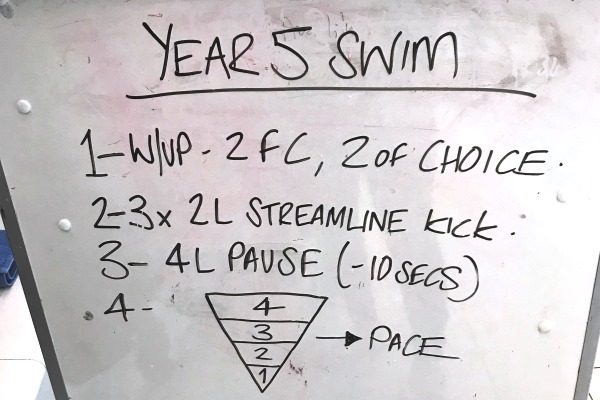 YEAR 5 SWIM
1-W/UP - 2 FC, 2 OF CHOICE.
2-3x 2L STREAMLINE KICK.
3- 4L PAUSE (-10 SECS)
4-
4
3
2
1
→ PACE